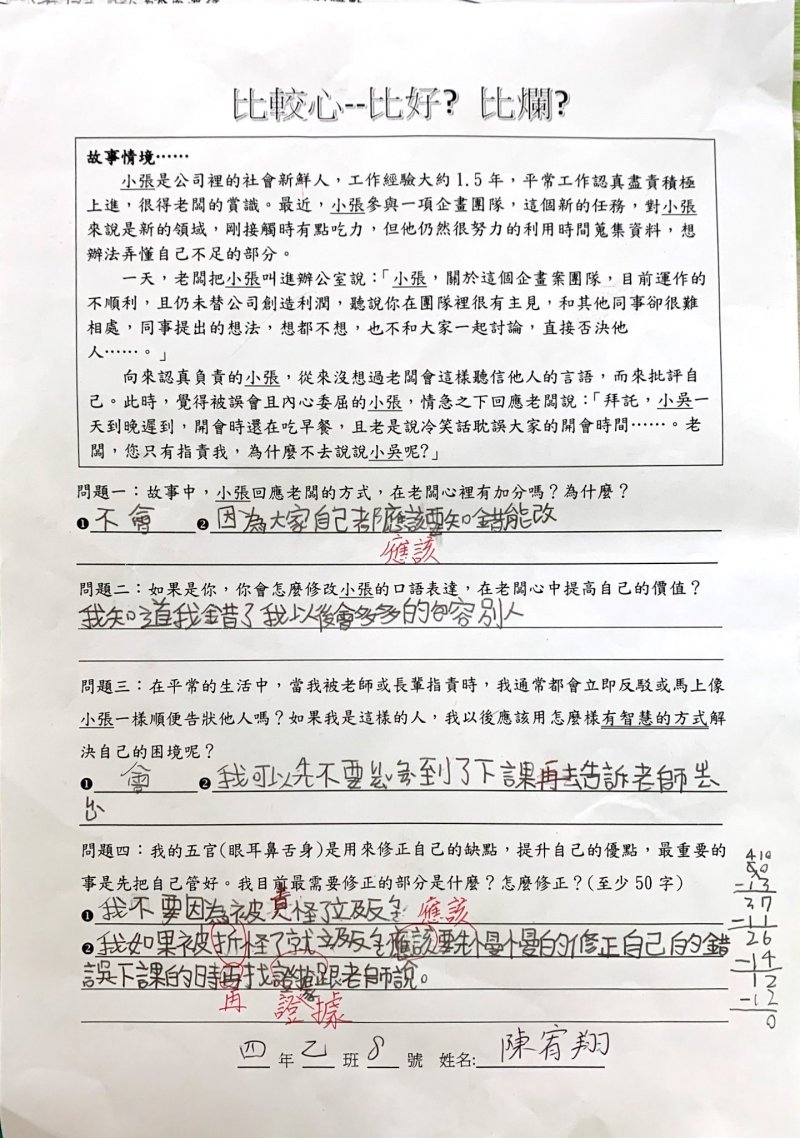 比較心--比好? 比爛?
故事情境……
小張是公司裡的社會新鮮人，工作經驗大約 1.5 年，平常工作認真盡責積極
上進，很得老闆的賞識。最近，小張參與一項企畫團隊，這個新的任務，對小張
來說是新的領域，剛接觸時有點吃力，但他仍然很努力的利用時間蒐集資料，想
辦法弄懂自己不足的部分。
一天，老闆把小張叫進辦公室說：「小張，關於這個企畫案團隊，目前運作的
不順利，且仍未替公司創造利潤，聽說你在團隊裡很有主見，和其他同事卻很難
相處，同事提出的想法，想都不想，也不和大家一起討論，直接否決他
人……。」
向來認真負責的小張，從來沒想過老闆會這樣聽信他人的言語，而來批評自
己。此時，覺得被誤會且內心委屈的小張，情急之下回應老闆說：「拜託，小吳一
天到晚遲到，開會時還在吃早餐，且老是說冷笑話耽誤大家的開會時間……。老
闆，您只有指責我，為什麼不去說說小吳呢?」
問題一：故事中，小張回應老闆的方式，在老闆心裡有加分嗎？為什麼？
❶不會 ❷因為大家自己都應該要知錯能改
應該
問題二：如果是你，你會怎麼修改小張的口語表達，在老闆心中提高自己的價值？
我知道我錯了我以後會多多的包容別人
問題三：在平常的生活中，當我被老師或長輩指責時，我通常都會立即反駁或馬上像
小張一樣順便告狀他人嗎？如果我是這樣的人，我以後應該用怎麼樣有智慧的方式解
決自己的困境呢？
❶會 ❷我可以先不要 到了下課再去告訴老師
問題四：我的五官(眼耳鼻舌身)是用來修正自己的缺點，提升自己的優點，最重要的
事是先把自己管好。我目前最需要修正的部分是什麼？怎麼修正？(至少 50 字)
❶我不要因為被責怪了立 應該
❷我如果被折怪了就立 應該要先慢慢的修正自己的錯
誤下課的時再找證據跟老師說。
再 證據
四年乙班8號 姓名:陳宥翔
4 10
50
-13
37
-11
26
-14
12
-12
0